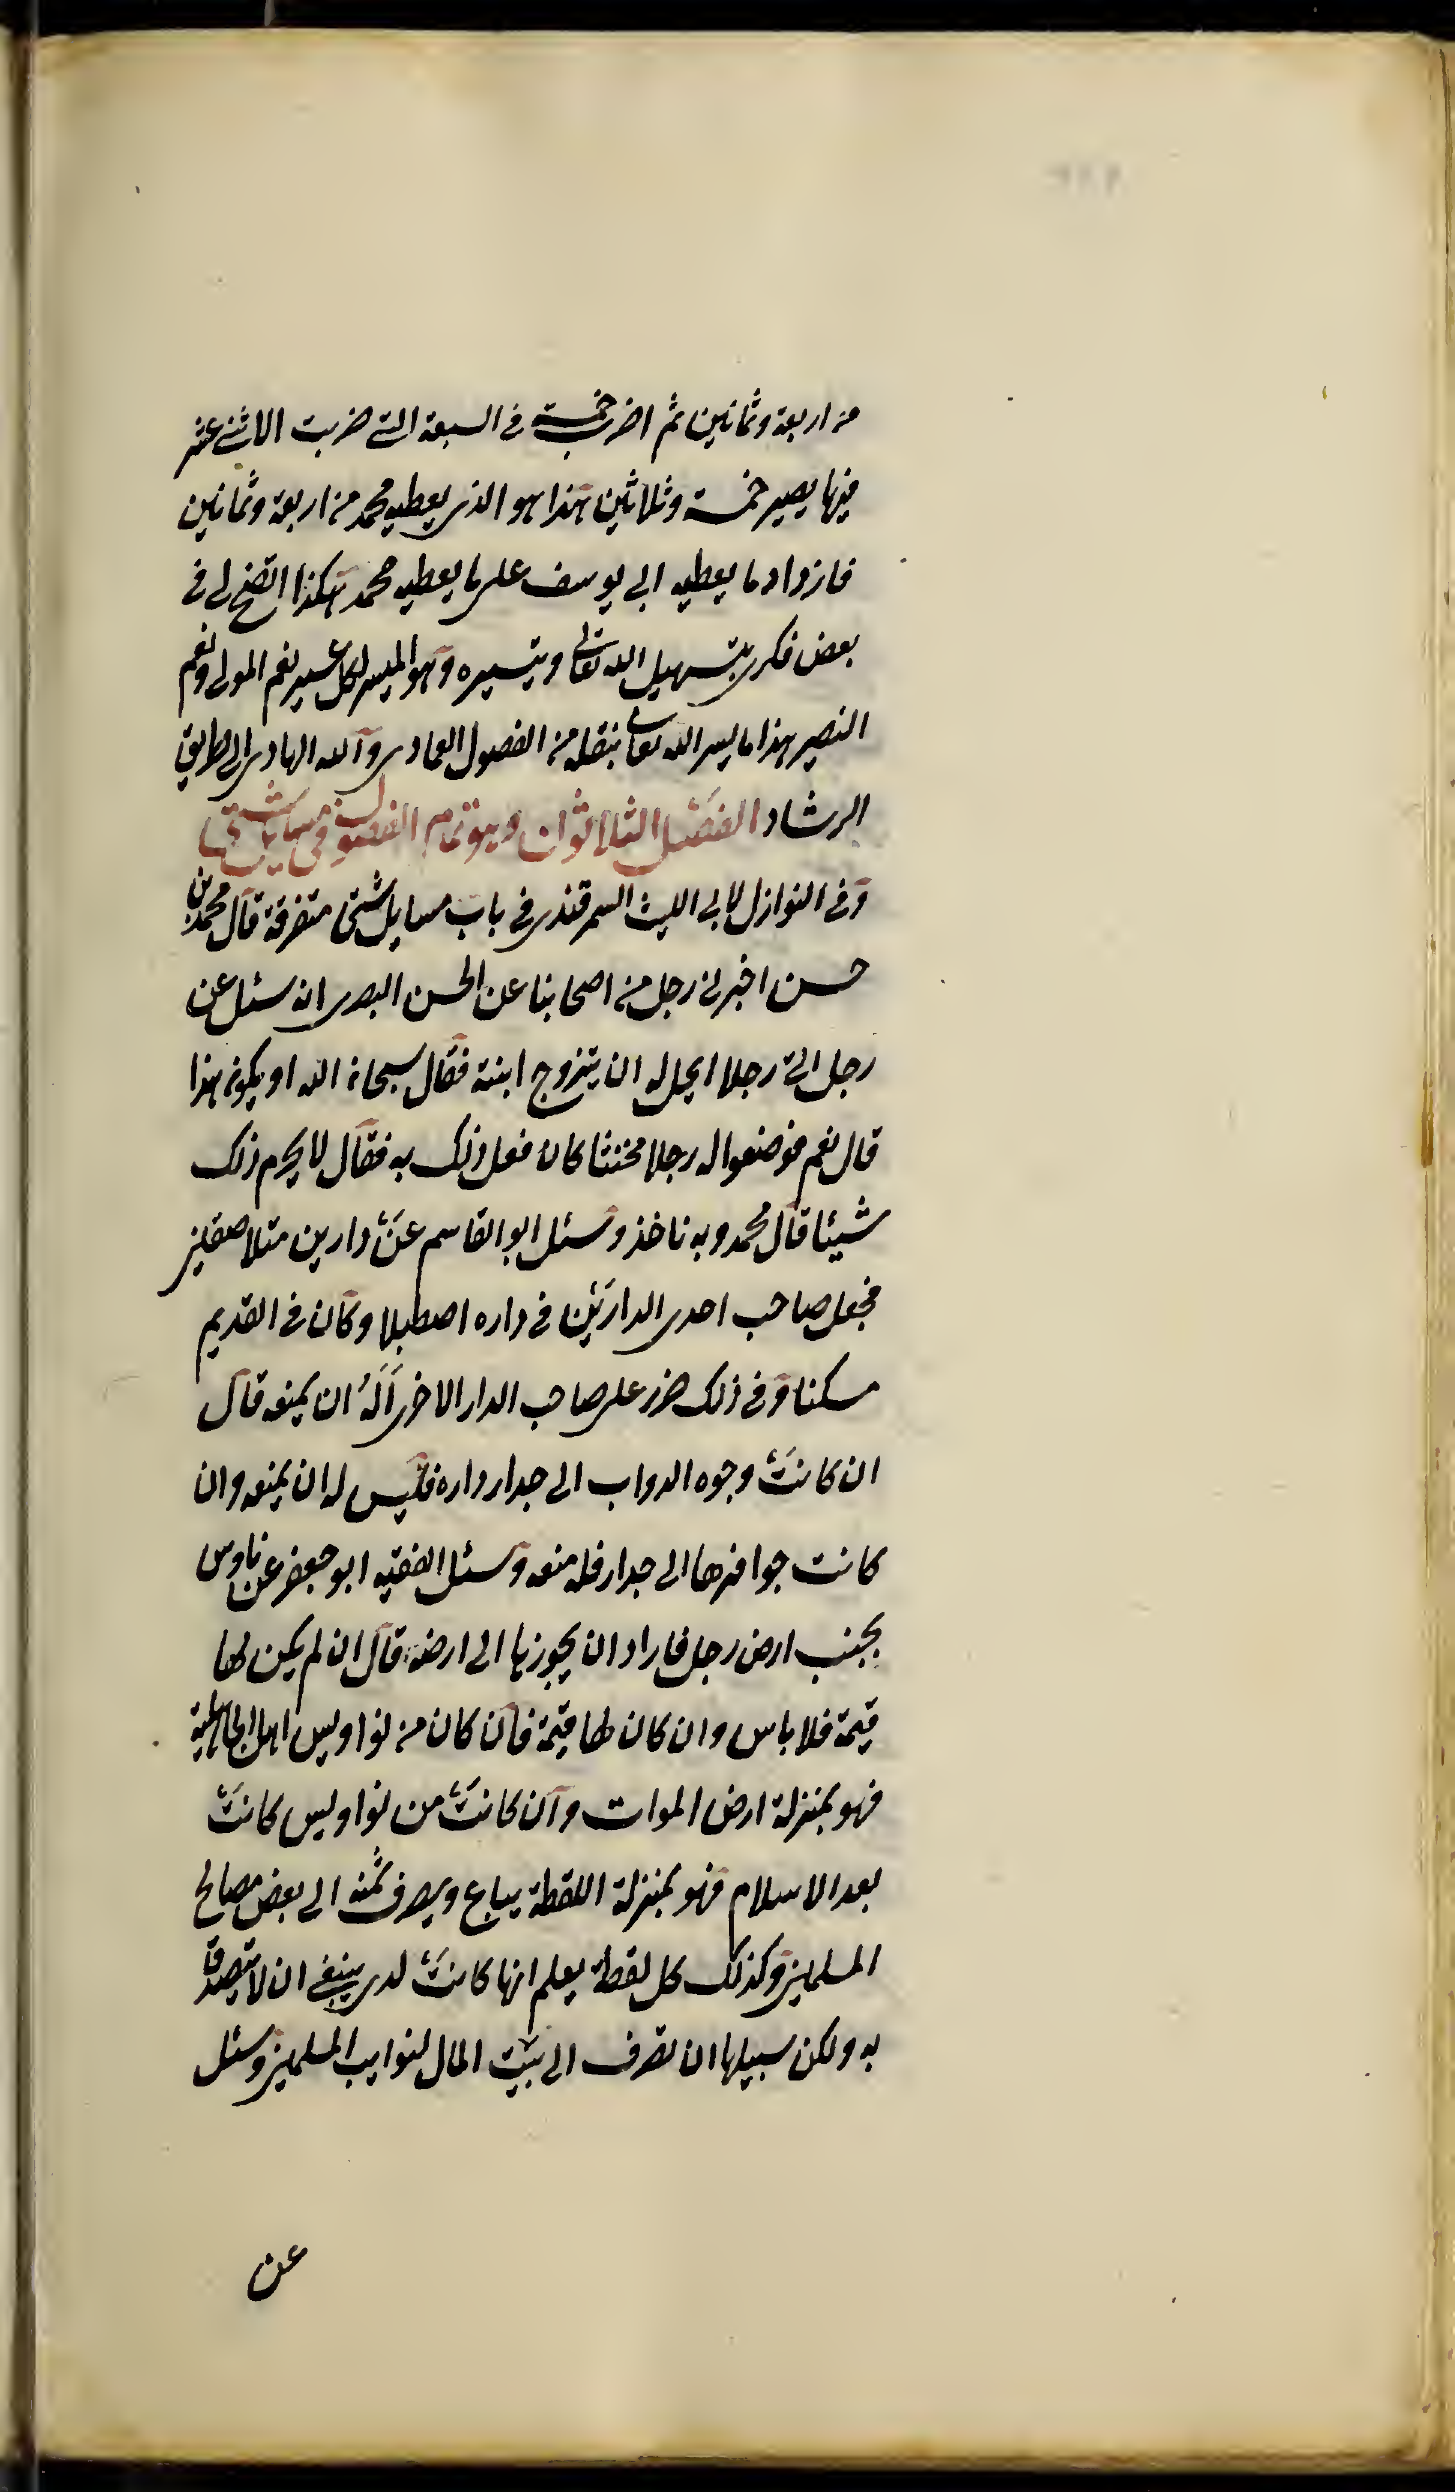 من اربعة وثمانين ثم اضرب خمسة فى السبعة التى ضربت الاثنى عشر
فيها يصير خمسة وثلاثين هذا هو الذى يعطيه محمد من اربعة وثمانين
فازداد ما يعطيه ابى يوسف على ما يعطيه محمد هكذا اتضح لى فى
بعض فكرى بتسهيل الله تعالى وتيسيره وهو الميسر لكل عسير نعم المولى ونعم
النصير هذا ما يسر الله تعالى بنقله من الفصول العمادى والله الهادى الى طريق
الرشاد الفصل الثلاثون وهو تمام الفصول فى مسايل شتى
وفى النوازل لابى الليث السمرقندى فى باب مسايل شتى متفرقة قال محمد بن
حسن اخبرنى رجل من اصحابنا عن الحسن البصرى انه سئل عن
رجل اتى رجلا ايحل له ان يتزوج ابنته فقال سبحان الله او يكون هذا
قال نعم فوضعوا له رجلا مخنثا كان فعل ذلك به فقال لا يحرم ذلك
شيئا قال محمد وبه ناخذ وسئل ابو القاسم عن دارين متلاصقين
فجعل صاحب احدى الدارين فى داره اصطبلا وكان فى القديم
مسكنا وفى ذلك ضرر على صاحب الدار الاخرى اله ان يمنعه قال
ان كانت وجوه الدواب الى جدار داره فليس له ان يمنعه وان
كانت حوافرها الى جدار فله منعه وسئل الفقيه ابو جعفر عن ناوس
بجنب ارض رجل فاراد ان يحوزها الى ارضه قال ان لم يكن لها
قيمة فلا باس وان كان لها قيمة فان كان من نواويس اهل الجاهلية
فهو بمنزلة ارض الموات وان كانت من نواويس كانت
بعد الاسلام فهو بمنزلة اللقطة يباع ويصرف ثمنه الى بعض مصالح
المسلمين وكذلك كل لقطة يعلم انها كانت لدى ينبغى ان لا يتصدق
به ولكن سبيلها ان تصرف الى بيت المال لنوايب المسلمين وسئل
عن